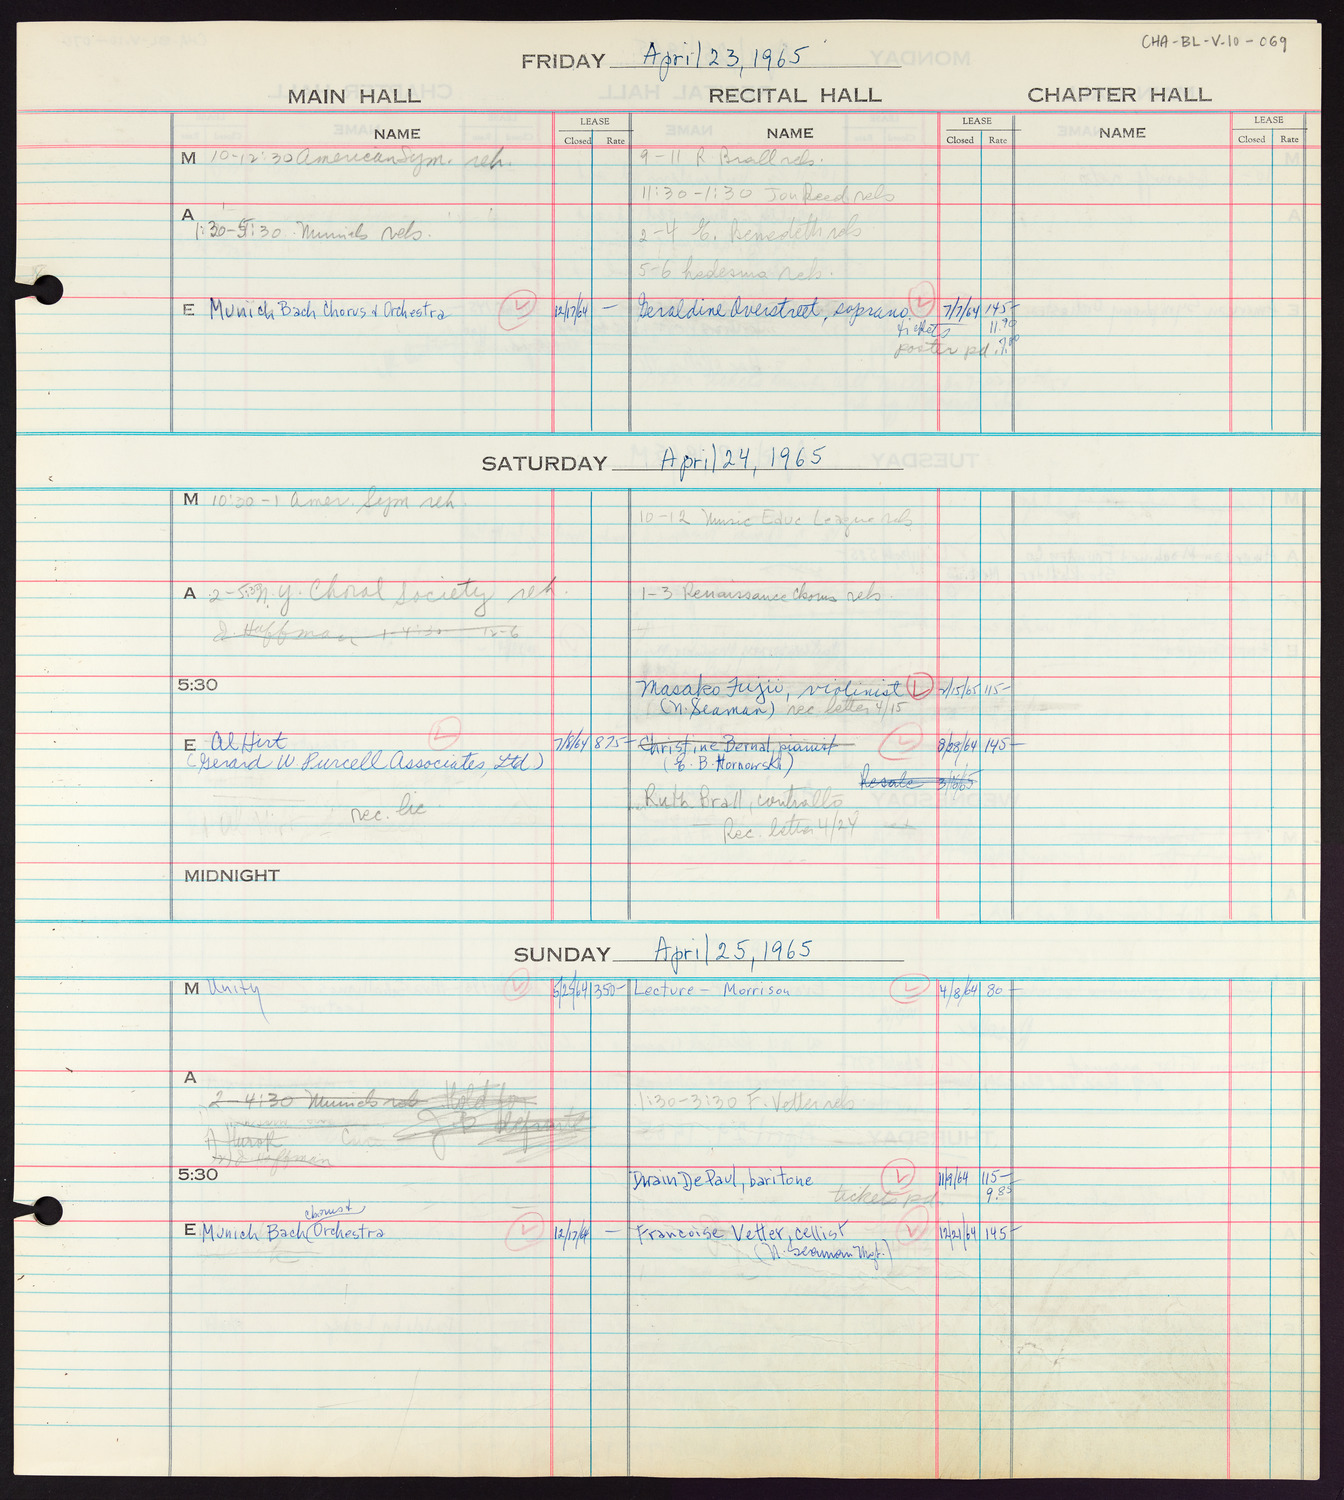 CHA-BL-V-10-069
FRIDAY April 23, 1965
MAIN HALL RECITAL HALL CHAPTER HALL
NAME LEASE Closed Rate NAME LEASE Closed Rate NAME LEASE Closed Rate
M 10-12:30 American Sym. reh. 9-11 R Brall reh.
11:30-1:30 Jon Reed reh
A 1:30-5:30 Munich reh. 2-4 reh
5-6 Ledesma reh.
E Munich Bach Chorus & Orchestra 12/17/64 — Geraldine Overstreet, soprano 7/7/64 145-
tickets 11.90
poster pd.
SATURDAY April 24, 1965
M 10:30-1 Amer. Sym reh
10-12 Music Educ League reh
A 2-5:30 N.Y. Choral Society reh. 1-3 Renaissance Chorus reh.
J. Hoffman 1-4:30 12-6
5:30 Masako Fujii, violinist 2/15/65 115-
(N. Seaman) rec letter 4/15
E Al Hirt 7/8/64 875- Christine Bernal, pianist 8/28/64 145-
(Gerard W. Purcell Associates, Ltd) (E. B. Hornowski)
Resale
rec. lic Ruth Brall, contralto
Rec. letter 4/24
MIDNIGHT
SUNDAY April 25, 1965
M Unity 5/25/64 350- Lecture - Morrison 4/8/64 80-
A
2-4:30 Munich reh Hold for 1:30-3:30 F. Vetter reh
Hurok
J Hoffman
5:30 Drain De Paul, baritone 11/9/64 115-
tickets pd. 9.85
chorus &
E Munich Bach Orchestra 12/17/64 — Francoise Vetter, cellist 12/21/64 145-
(N. Seaman Mgt.)